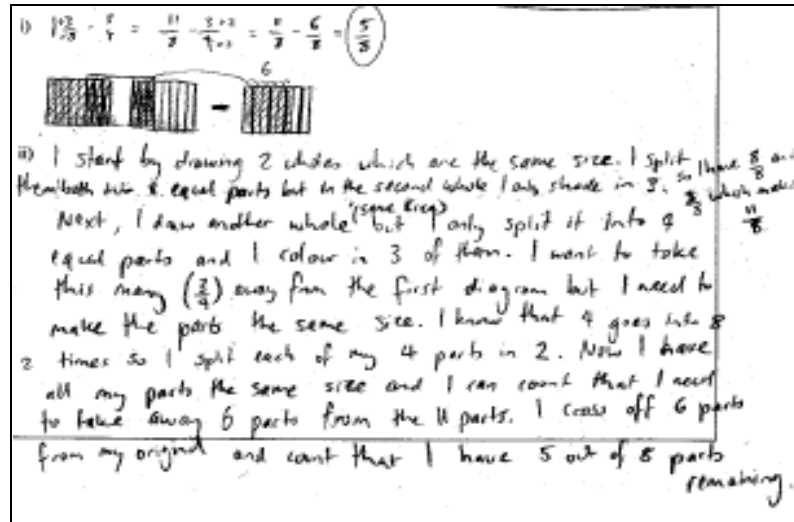 i) 1 3/8 - 3/4 = 11/8 - 3×2/4×2 = 11/8 - 6/8 = 5/8
6
-
ii) I start by drawing 2 wholes which are the same size. I split
them both into 8 equal parts but in the second whole I only shade in 3. so I have 8/8 and
3/8 which makes
11/8
Next, I draw another whole (same size) but I only split it into 4
equal parts and I colour in 3 of them. I want to take
this many (3/4) away from the first diagram but I need to
make the parts the same size. I know that 4 goes into 8
2 times so I split each of my 4 parts in 2. Now I have
all my parts the same size and I can count that I need
to take away 6 parts from the 11 parts. I cross off 6 parts
from my original and count that I have 5 out of 8 parts
remaining.